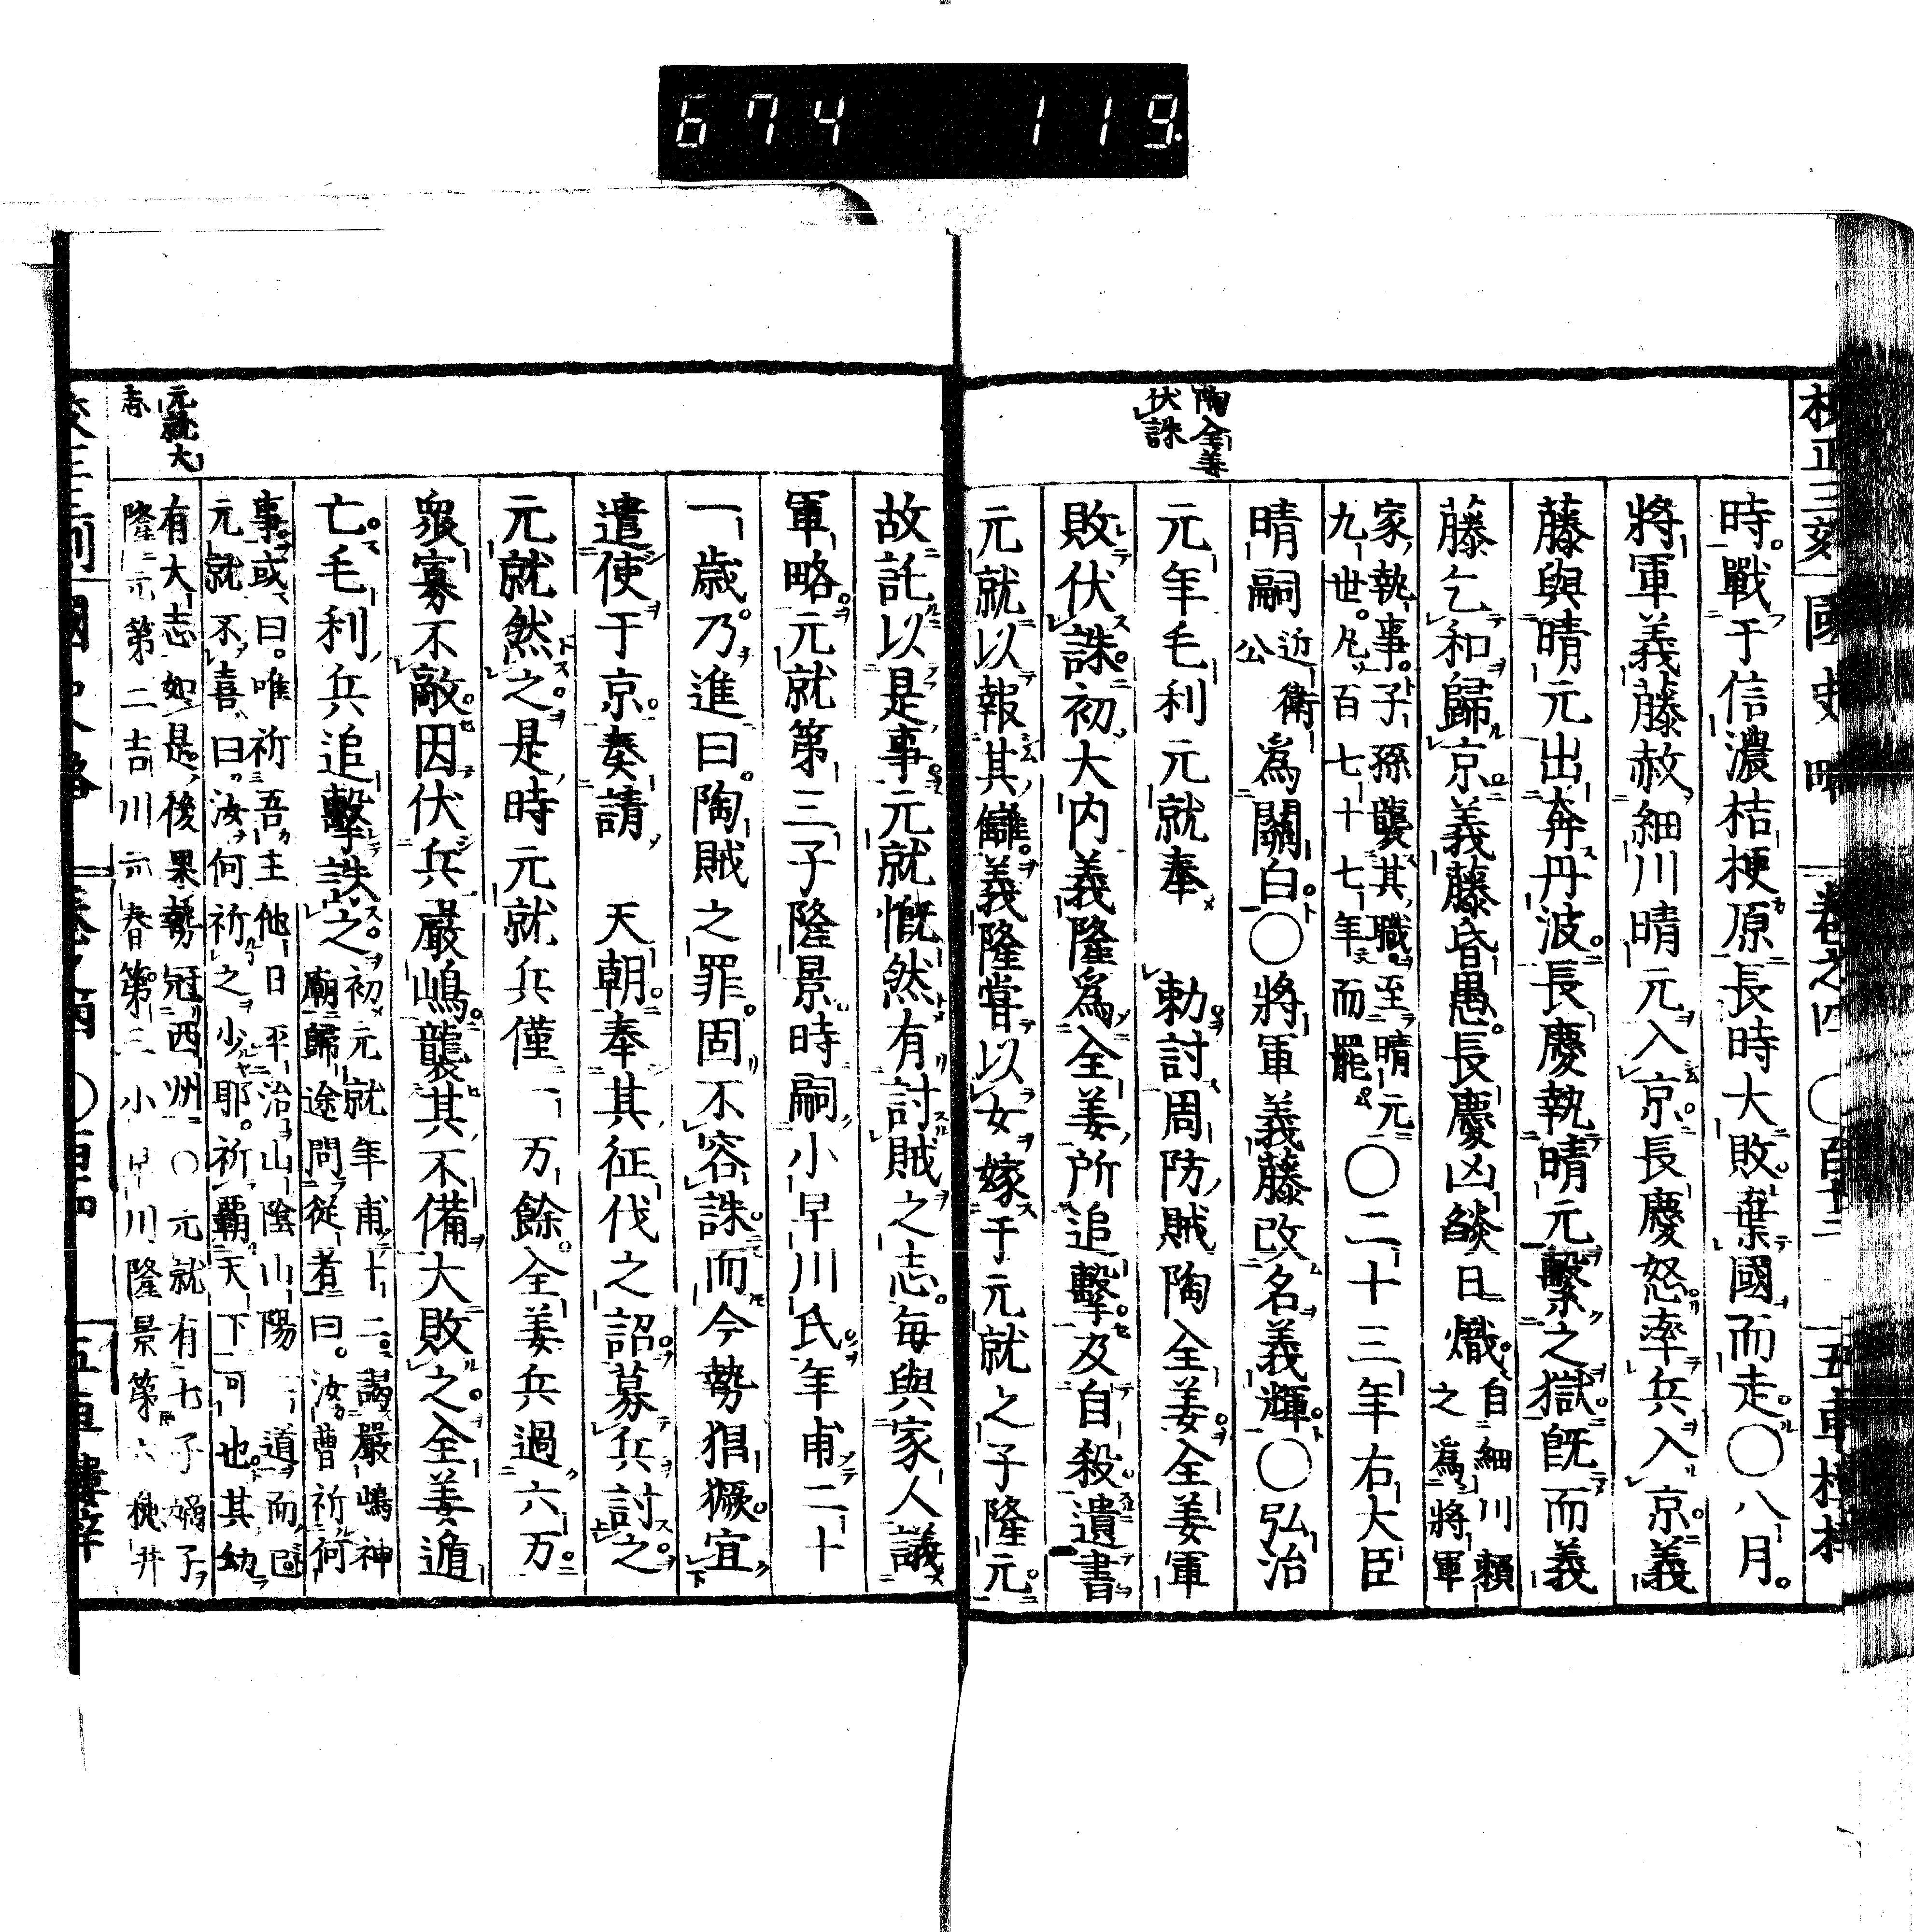 674 119.
校正三刻 國史略 卷之四 〇百十三 五車樓梓
陶全姜
伏誅
時。戰于信濃桔梗原長時大敗。棄國而走。〇八月。
將軍義藤赦細川晴元入京。長慶怒。率兵入京。義
藤與晴元出奔丹波。長慶執晴元繫之獄。旣而義
藤乞和歸京。義藤昏愚。長慶凶燄日熾。自細川賴
之爲將軍
家執事。子孫襲其職。至晴元
九世。凡百七十七年而罷。〇二十三年右大臣
晴嗣近衛
公爲關白。〇將軍義藤改名義輝。〇弘治
元年毛利元就奉 勅。討周防賊陶全姜。全姜軍
敗伏誅。初大内義隆爲全姜所追擊。及自殺遺書
元就以報其讎。義隆嘗以女嫁于元就之子隆元。
故託以是事。元就慨然有討賊之志。每與家人議
軍略。元就第三子隆景時嗣小早川氏年甫二十
一歳。乃進曰。陶賊之罪。固不容誅。而今勢猖獗。宜
遣使于京。奏請 天朝。奉其征伐之詔。募兵討之
元就然之。是時元就兵僅一万餘。全姜兵過六万。
衆寡不敵。因伏兵嚴嶋。襲其不備大敗之。全姜遁
亡。毛利兵追擊誅之。初元就年甫十二。謁嚴嶋神
廟歸途問從者曰。汝曹祈何
事。或曰。唯祈吾主他日平治山陰山陽二道而已
元就不喜曰。汝何祈之少耶。祈霸天下可也其幼
有大志如是。後果勢冠西州〇元就有七子嫡子
隆元第二吉川元春第三小早川隆景第六桃井
元就大
志
五車樓梓